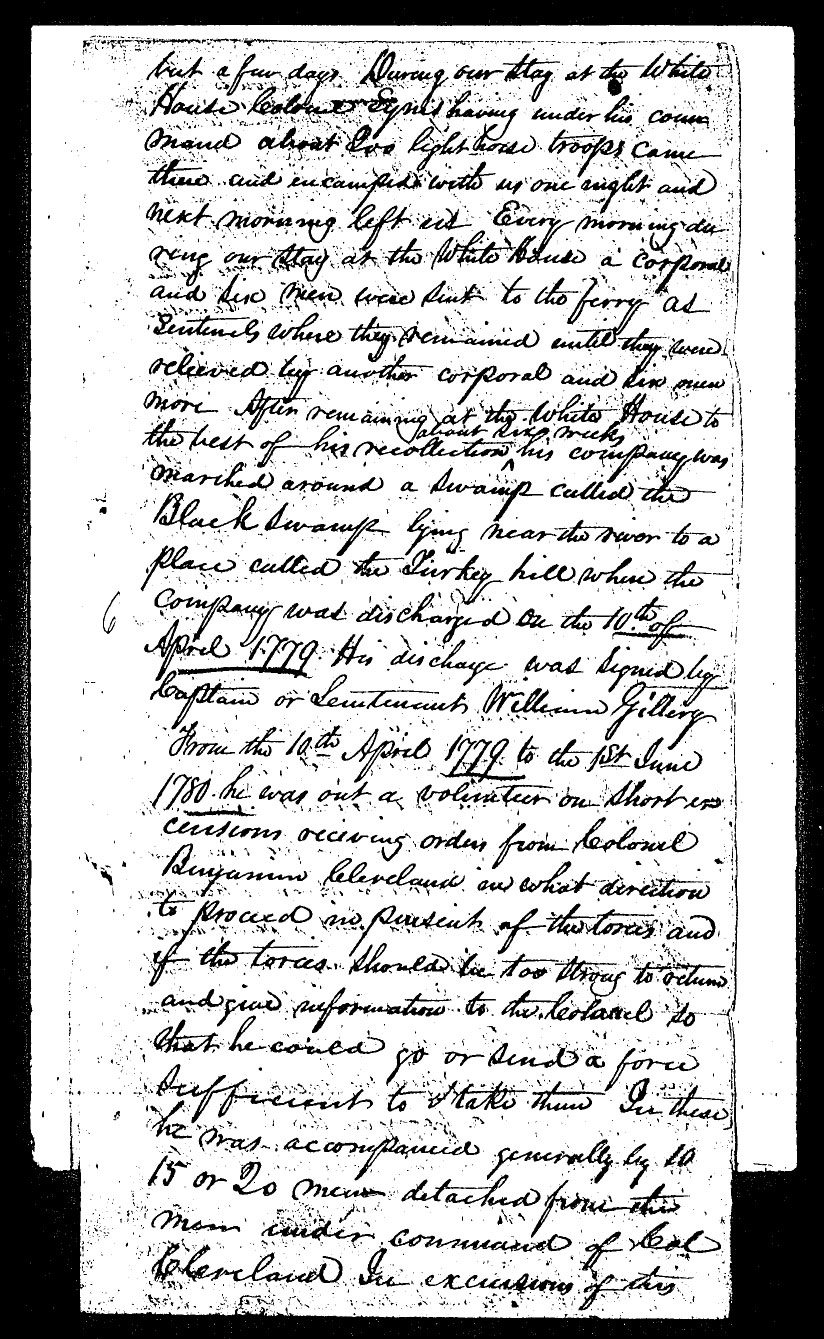 but a few days During our stay at the White
House Colonel having under his com
mand about 200 light horse troops came
there and encamped with us one night and
next morning left us Every morning du
ring our stay at the White House a corporal
and six men were sent to the ferry as
Sentinels where they remained until they were
relieved by another corporal and six men
more After remaining at the White House to
about six weeks
the best of his recollection his company was
marched around a swamp called the
Black Swamp lying near the river to a
place called the Turkey hill where the
6
company was discharged on the 10th of
April 1779 His discharge was signed by
Captain or Lieutenant William Gillery
From the 10th April 1779 to the 1st June
1780 he was out a volunteer on short ex
cursions receiving orders from Colonel
Benjamin Cleveland in what direction
to proceed in pursuit of the tories and
if the tories should be too strong to return
and give information to the Colonel so
that he could go or send a force
sufficient to take them In these
he was accompanied generally by 10
15 or 20 men detached from the
men under command of Col
Cleveland In excursions of this